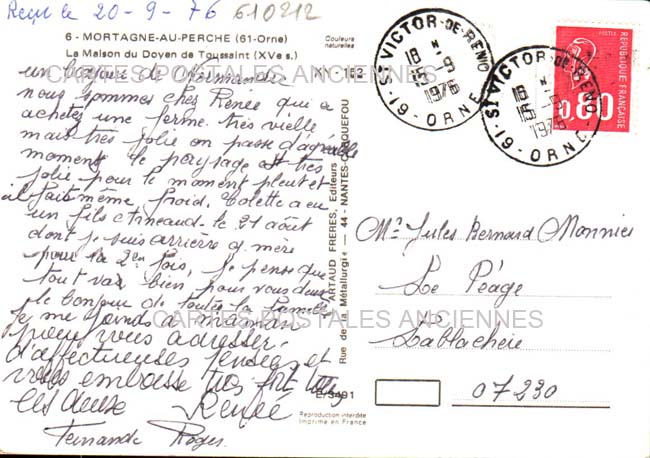 Reçu le 20-9-76 610212
6 - MORTAGNE-AU-PERCHE (61-Orne)
La Maison du Doyen de Toussaint (XVe s.)
Couleurs
naturelles
XI - 182
un bonjour de Normandie
nous sommes chez Renée qui a
achetez une ferme très vieille
mais très jolie on passe d'agréable
moment le paysage est très
jolie pour le moment pleut et
il fait même froid. Colette a eu
un fils Arneaud le 21 août
dont je suis arrière g. mère
pour la 2em fois, je pense que
tout va bien pour vous deux
le bonjour de toute la famille
je me joinds à maman
pour vous adresser
d'affectueuses pensées et
vous embrasse très fort
les deux Renée
Fernande Roger
ARTAUD FRERES, Editeurs
Rue de la Métallurgie — 44 - NANTES-CARQUEFOU
E/3491
Reproduction interdite
Imprimé en France
St VICTOR-DE-RENO
18 H
15-9
1976
61 - ORNE
St VICTOR-DE-RENO
18 H
15-9
1976
61 - ORNE
POSTES
REPUBLIQUE FRANÇAISE
0,80
Mr Jules Bernard Monnier
Le Péage
Lablachère
07230
CARTES POSTALES ANCIENNES
CARTES POSTALES ANCIENNES